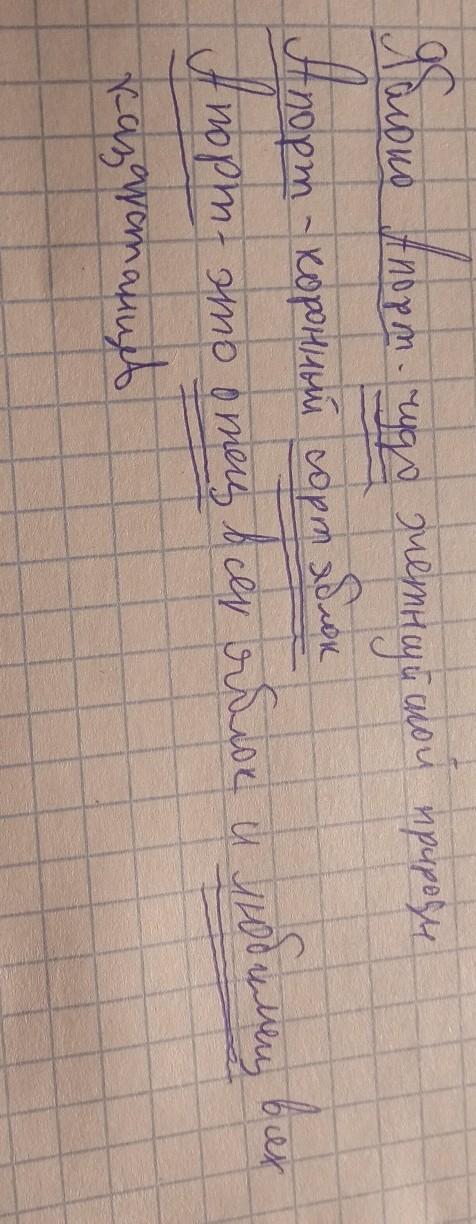 Яблоко Апорт - чудо жетысуйской природы
Апорт - коронный сорт яблок
Апорт - это отец всех яблок и любимец всех
казахстанцев